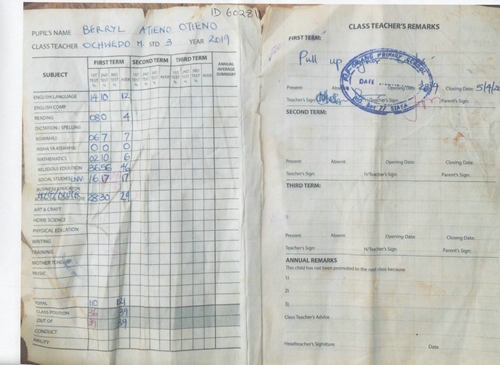 ID 60281
PUPIL'S NAME BERRYL ATIENO OTIENO
CLASS TEACHER OCHWEDO M. STD 3 YEAR 2019
SUBJECT FIRST TERM SECOND TERM THIRD TERM ANNUAL AVERAGE SUMMARY
ENGLISH LANGUAGE 14 10 12
ENGLISH COMP
READING 08 0 4
DICTATION / SPELLING
KISWAHILI 06 7 7
INSHA 0 0 0
MATHEMATICS 02 10 6
RELIGIOUS EDUCATION
SOCIAL STUDIES ENV 16 17 17
28 30 29
ART & CRAFT
HOME SCIENCE
PHYSICAL EDUCATION
WRITING
TRAINING
MOTHER TONGUE
MUSIC
TOTAL
CLASS POSITION 39
OUT OF 39
CONDUCT
ABILITY
CLASS TEACHER'S REMARKS
FIRST TERM:
Pull up
PRIMARY SCHOOL
DATE
Closing Date: 5/4/20
Teacher's Sign: Parent's Sign:
SECOND TERM:
Present: Absent: Opening Date: Closing Date:
Teacher's Sign: H/Teacher's Sign: Parent's Sign:
THIRD TERM:
Present: Absent: Opening Date: Closing Date:
Teacher's Sign: H/Teacher's Sign: Parent's Sign:
ANNUAL REMARKS
This child has not been promoted to the next class because
1)
2)
3)
Class Teacher's Advise
Headteacher's Signture Date